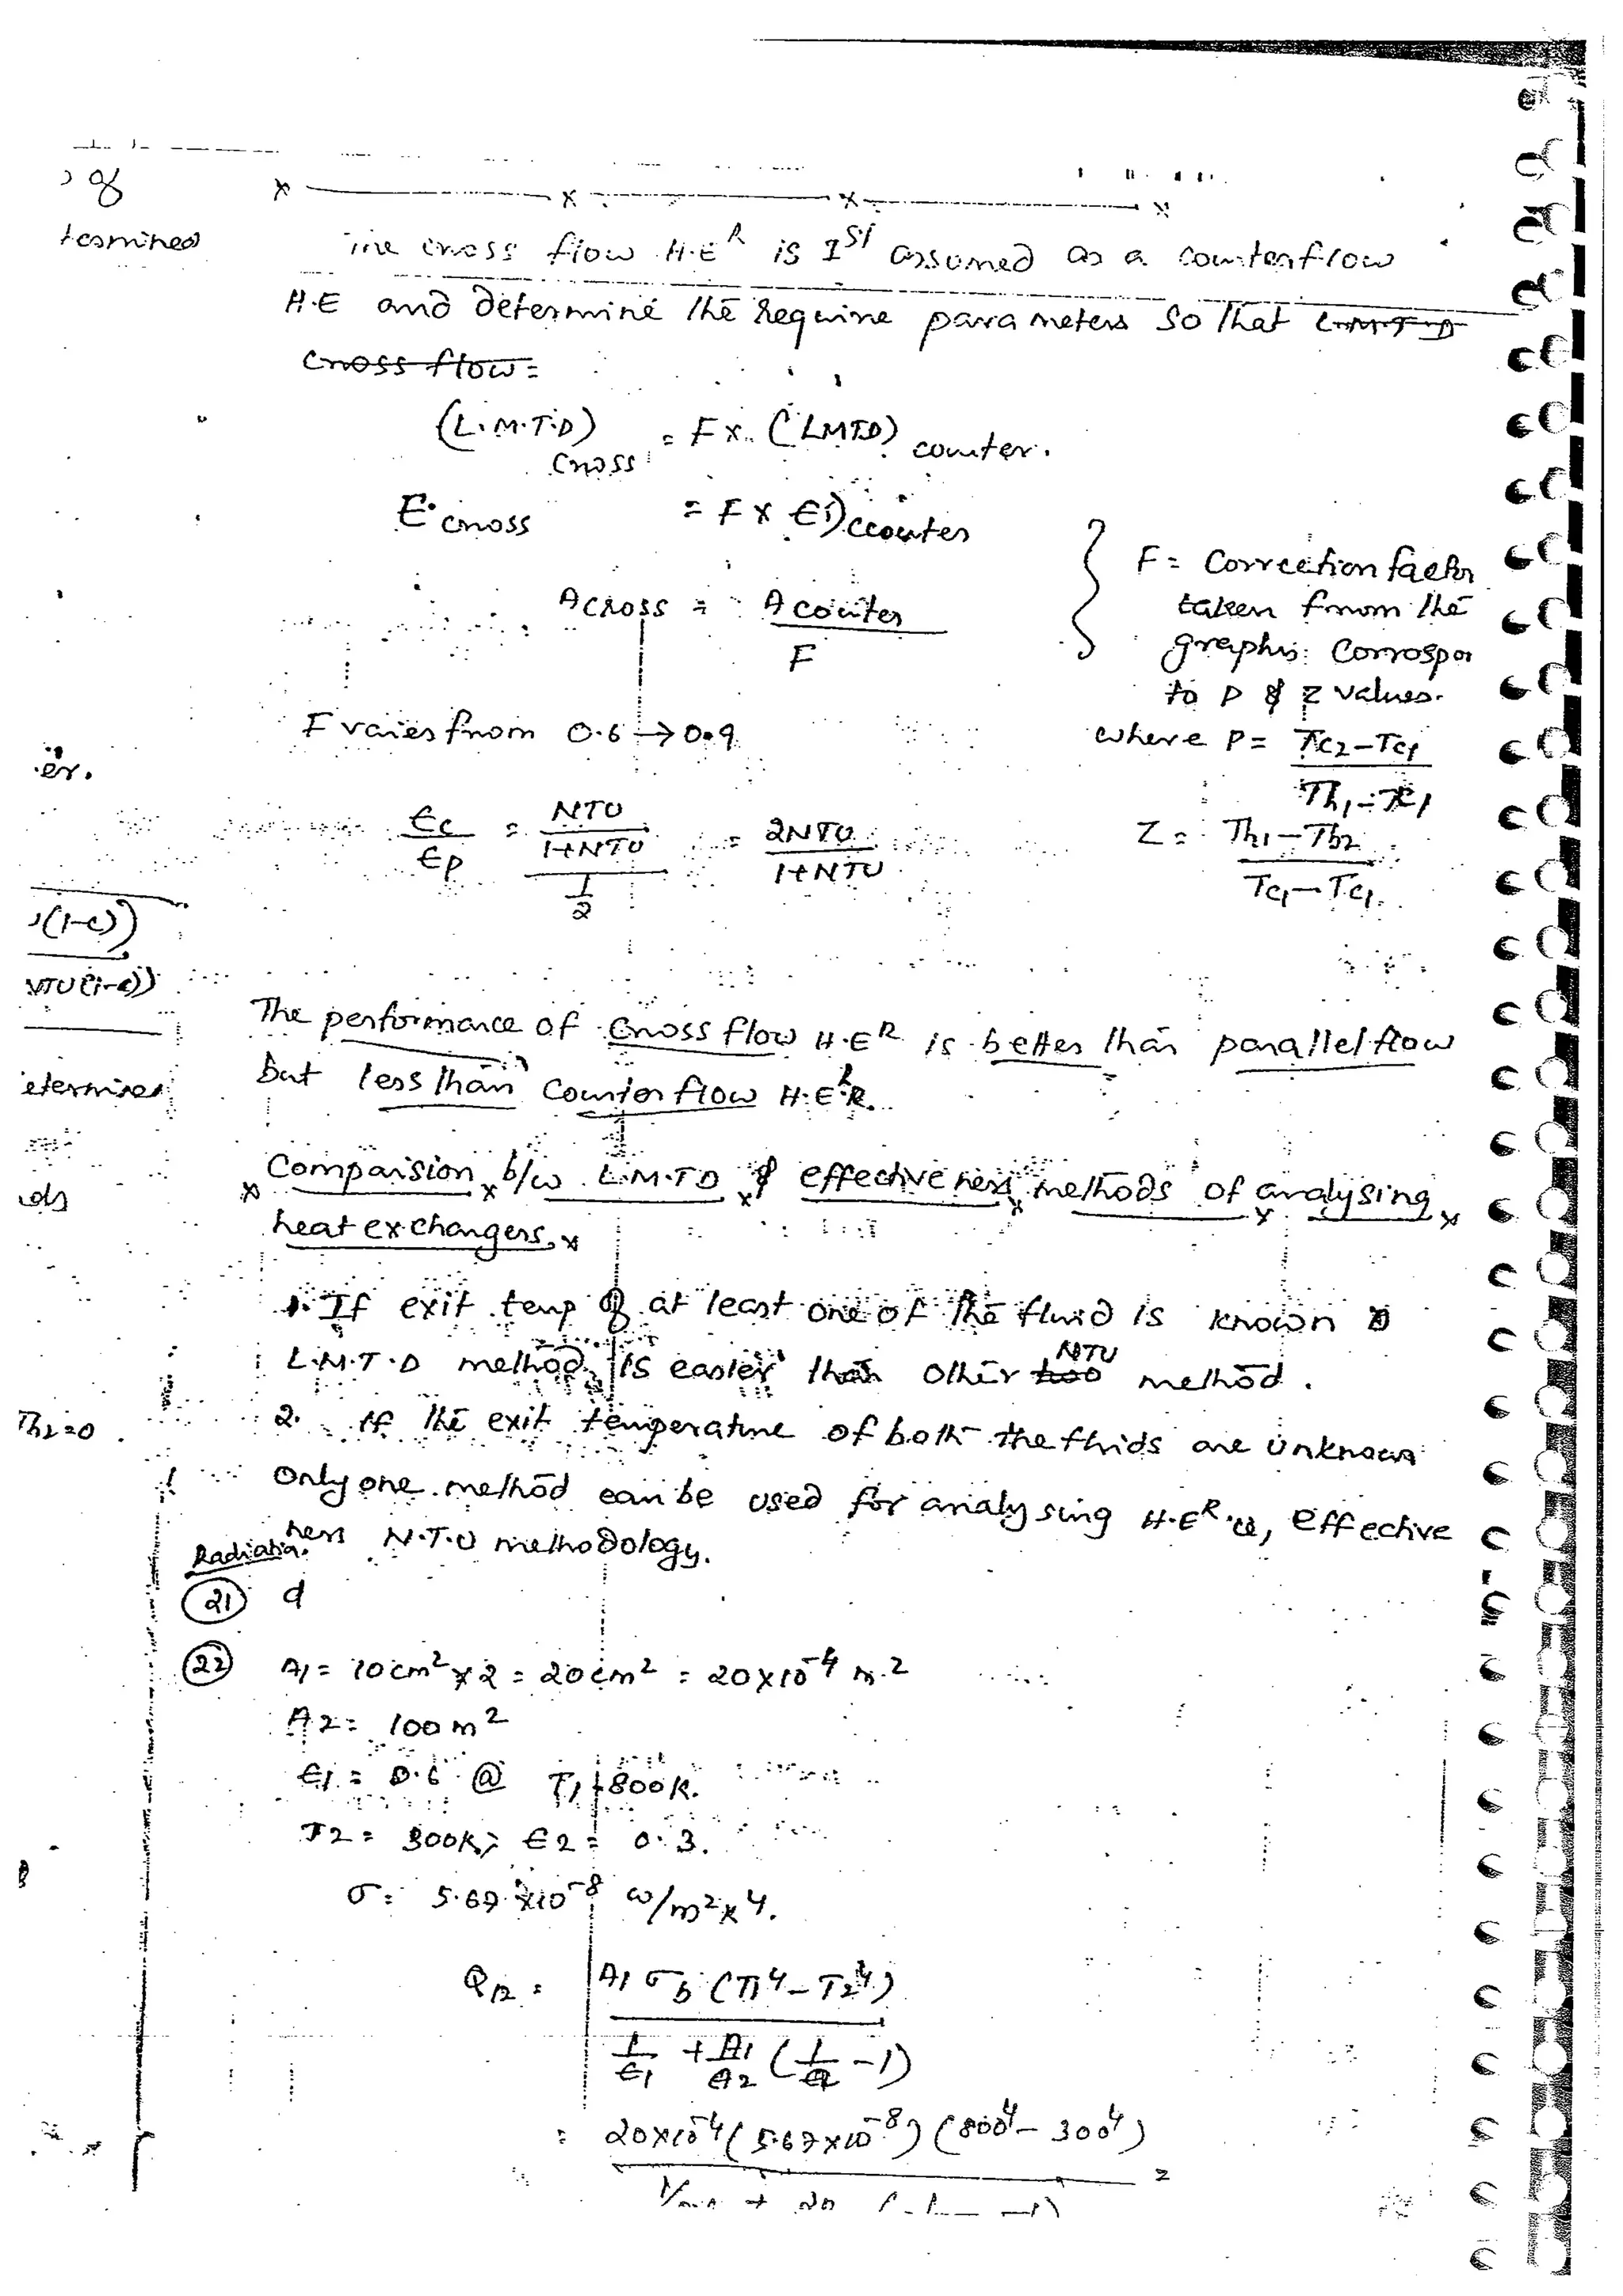 of
termined
The cross flow H.E^R is I^st assumed as a counterflow
H.E and determine the require parameters so that L.M.T.D
cross flow =
(L.M.T.D) cross = F x (LMTD) counter.
E cross = F x E) counter
A cross = A counter / F
{ F = Correction factor
taken from the
graphs: Corrospon
to P & Z values.
F varies from 0.6 → 0.9
where P = Tc2-Tc1 / Th1-Tc1
er.
Єc / Єp = NTU / 1+NTU / 1/2 = 2NTU / 1+NTU
Z = Th1-Th2 / Tc1-Tc1.
(1-c))
NTU(1-c))
The performance of cross flow H.E^R is better than parallel flow
etermines
but less than Counter flow H.E^R.
Compaision b/w L.M.T.D & effectiveness methods of analysing
ds
heat exchangers.
1. If exit temp of at least one of the fluid is known
L.M.T.D method is easier than other too NTU method.
2. If the exit temperature of both the fluids are unknown
Th2=0
Only one method can be used for analysing H.E^R ie, effective
ness N.T.U methodology.
Radiation
(21) d
(22) A1 = 10cm² x 2 = 20cm² = 20x10^-4 m²
A2 = 100m²
Є1 = 0.6 @ T1 = 800K.
T2 = 300K; Є2 = 0.3.
σ = 5.67x10^-8 w/m²k4.
Q12 = A1 σb (T1^4 - T2^4) / 1/Є1 + A1/A2 (1/Є2 - 1)
= 20x10^-4 (5.67x10^-8) (800^4 - 300^4) / =